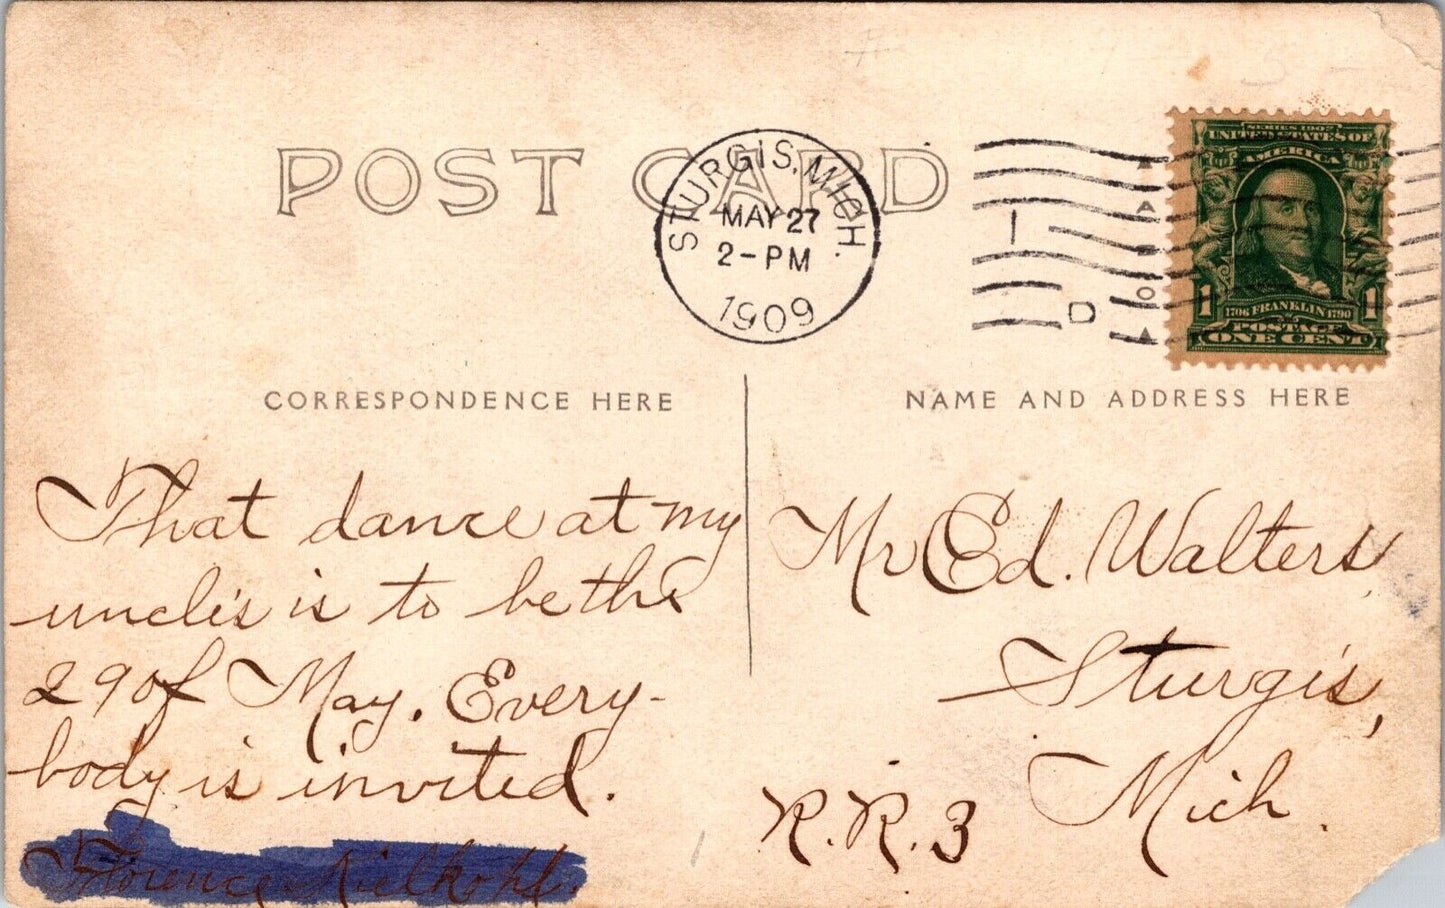 POST CARD
STURGIS, MICH.
MAY 27
2-PM
1909
D
SERIES 1902
UNITED STATES OF
AMERICA
1 1
1706 FRANKLIN 1790
POSTAGE
ONE CENT
CORRESPONDENCE HERE
That dance at my
uncle's is to be the
29 of May. Every-
body is invited.
Florence
NAME AND ADDRESS HERE
Mr Ed. Walters,
Sturgis,
Mich.
R.R. 3